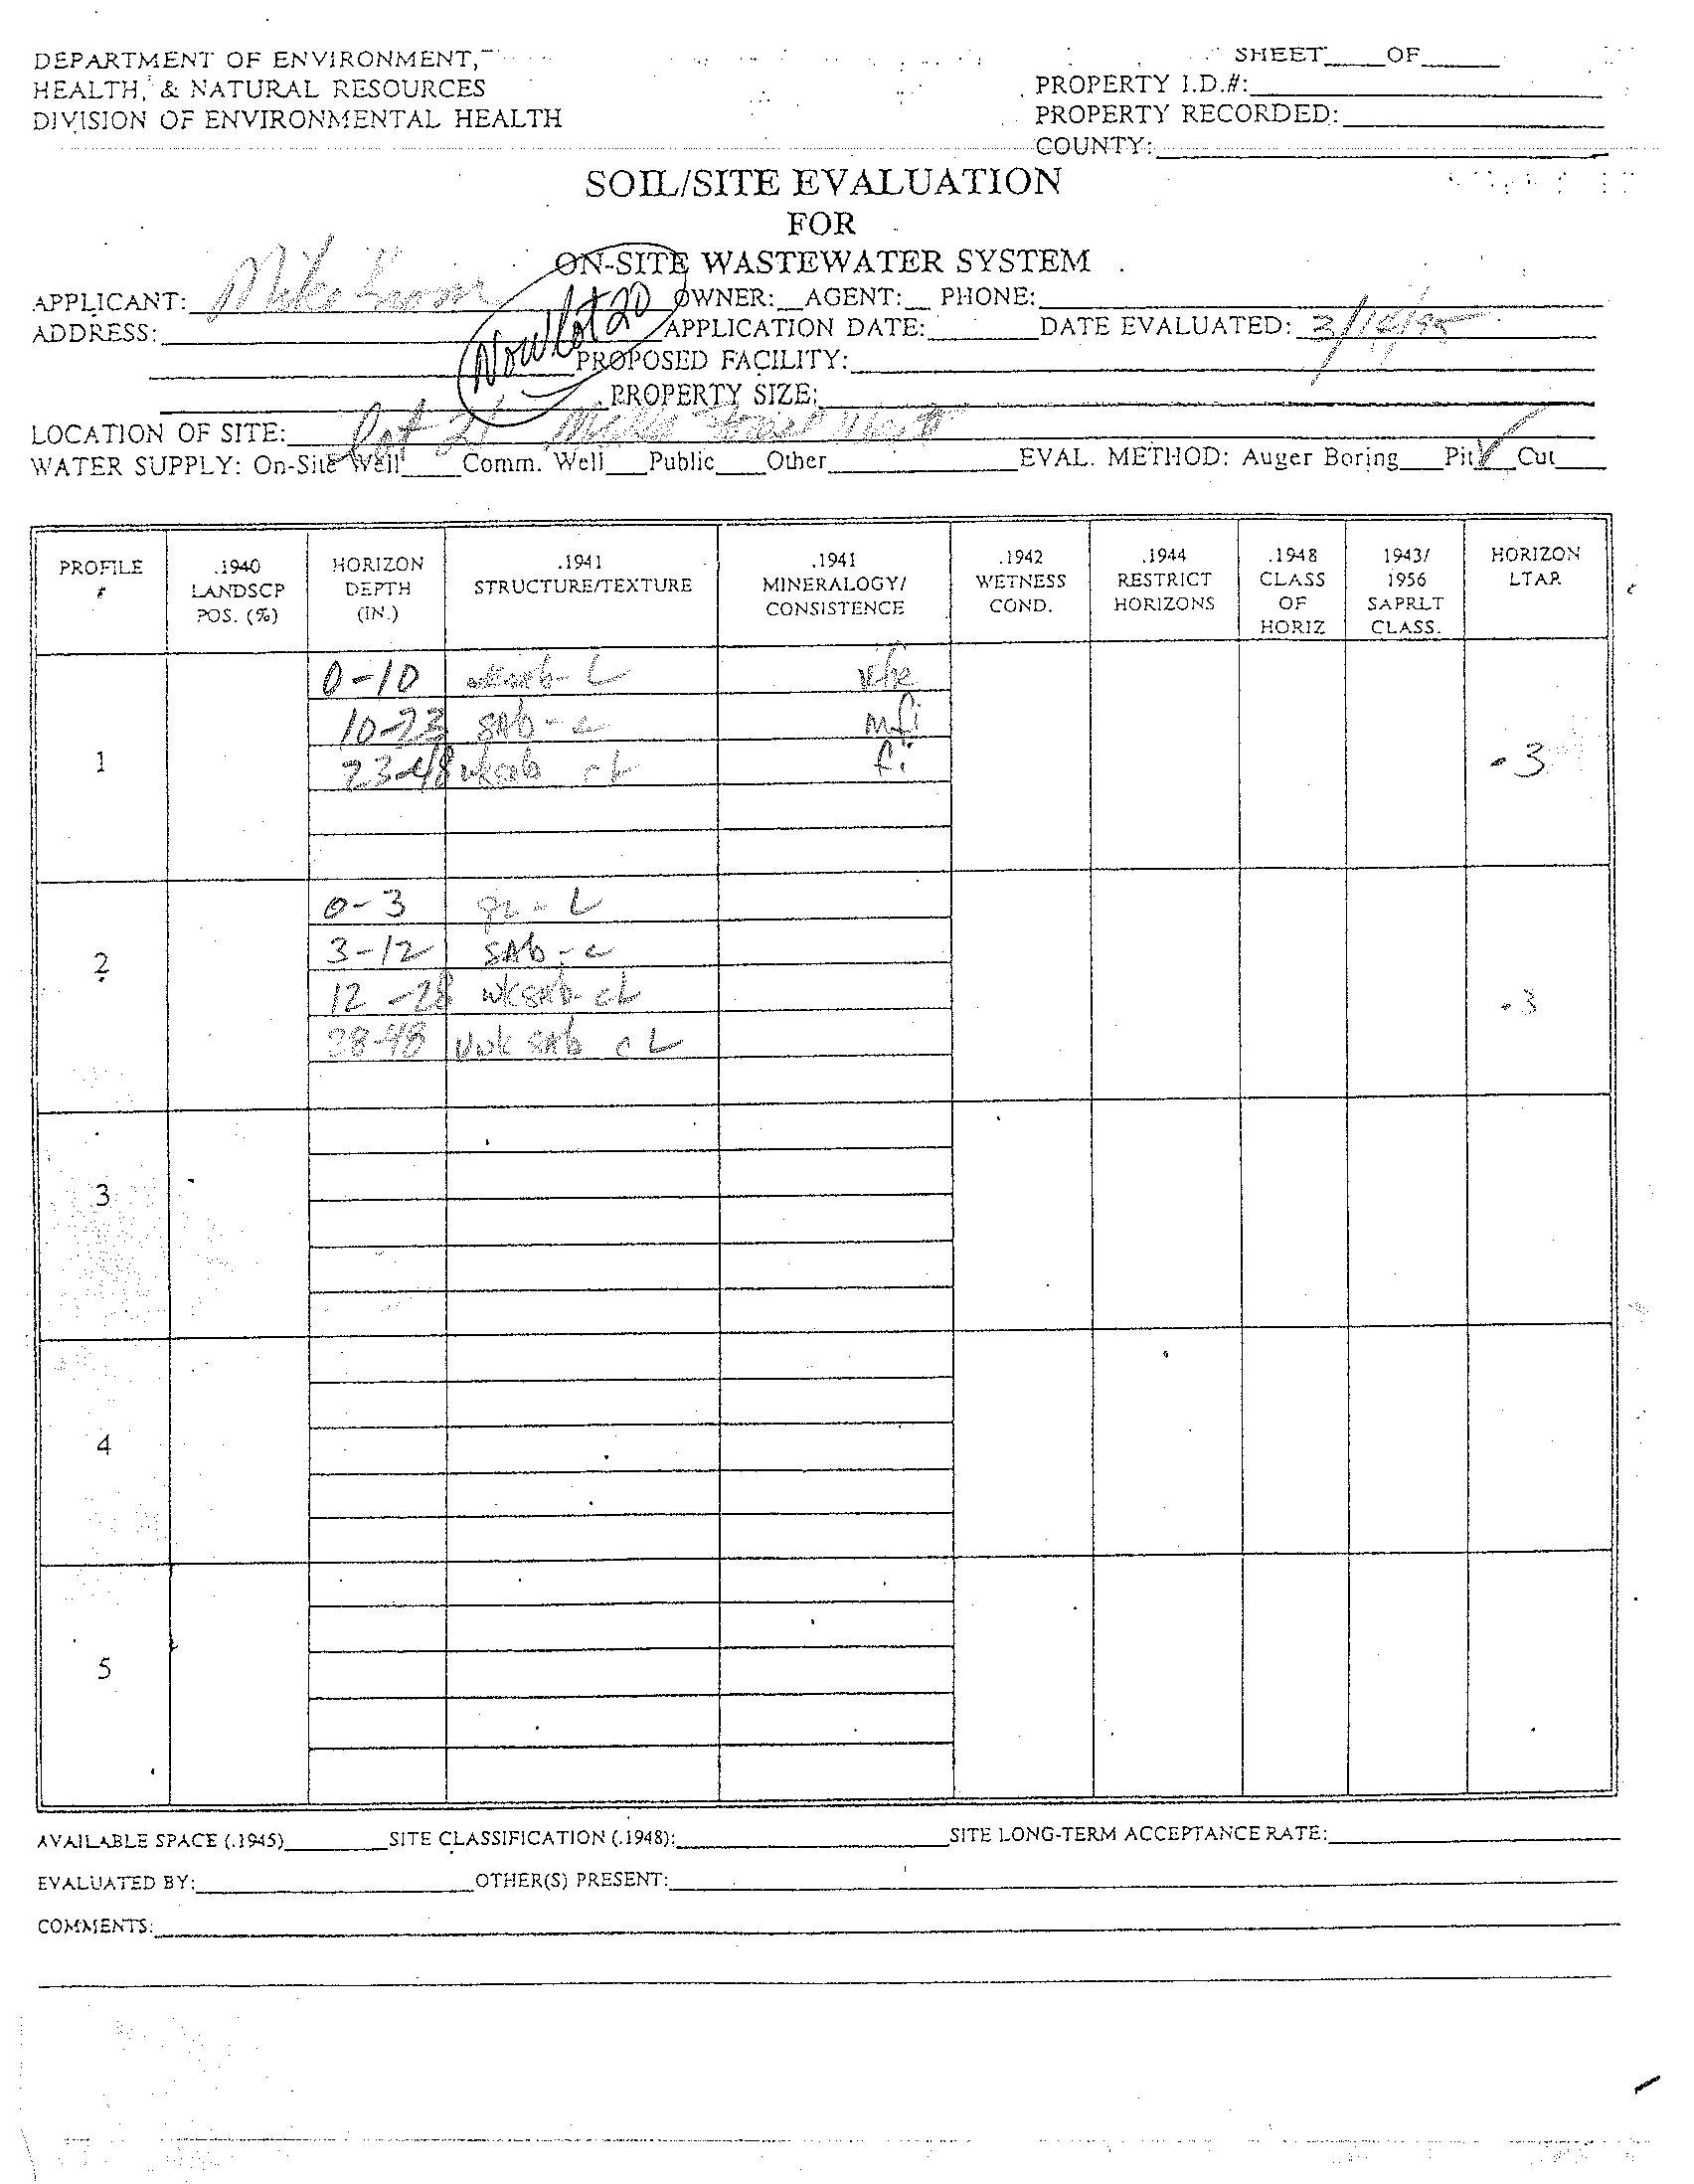 DEPARTMENT OF ENVIRONMENT,
HEALTH, & NATURAL RESOURCES
DIVISION OF ENVIRONMENTAL HEALTH
SHEET____OF____
PROPERTY I.D.#:
PROPERTY RECORDED:
COUNTY:
SOIL/SITE EVALUATION
FOR
ON-SITE WASTEWATER SYSTEM
APPLICANT: Mike OWNER:__AGENT:__ PHONE:
Now Lot 20
ADDRESS: APPLICATION DATE: DATE EVALUATED: 3/14/95
PROPOSED FACILITY:
PROPERTY SIZE:
LOCATION OF SITE: Lot 21
WATER SUPPLY: On-Site Well____Comm. Well___Public___Other____ EVAL. METHOD: Auger Boring___Pit✓__Cut___
PROFILE # .1940 LANDSCP POS. (%) HORIZON DEPTH (IN.) .1941 STRUCTURE/TEXTURE .1941 MINERALOGY/ CONSISTENCE .1942 WETNESS COND. .1944 RESTRICT HORIZONS .1948 CLASS OF HORIZ 1943/ 1956 SAPRLT CLASS. HORIZON LTAR
1
0-10 wksab-L vfr
10-23 SAb-c mfi
23-48 wksab cL fi
.3
2
0-3 gr-L
3-12 SAb-c
12-28 wksAb-cL
28-48 Vwk SAb cL
.3
3
4
5
AVAILABLE SPACE (.1945) SITE CLASSIFICATION (.1948): SITE LONG-TERM ACCEPTANCE RATE:
EVALUATED BY: OTHER(S) PRESENT:
COMMENTS: